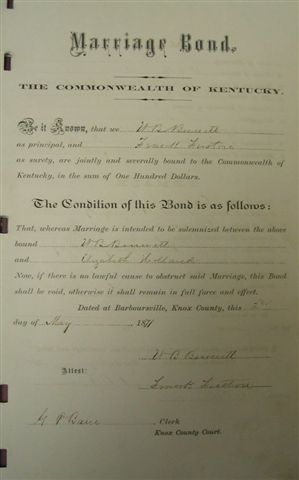 Marriage Bond.
THE COMMONWEALTH OF KENTUCKY.
Be it Known, that we W B Bennett
as principal, and
as surety, are jointly and severally bound to the Commonwealth of
Kentucky, in the sum of One Hundred Dollars.
The Condition of this Bond is as follows:
That, whereas Marriage is intended to be solemnized between the above
bound W B Bennett
and Elizabeth Holland
Now, if there is no lawful cause to obstruct said Marriage, this Bond
shall be void, otherwise it shall remain in full force and effect.
Dated at Barboursville, Knox County, this
day of May 1871
W B Bennett
Attest:
Clerk
Knox County Court.